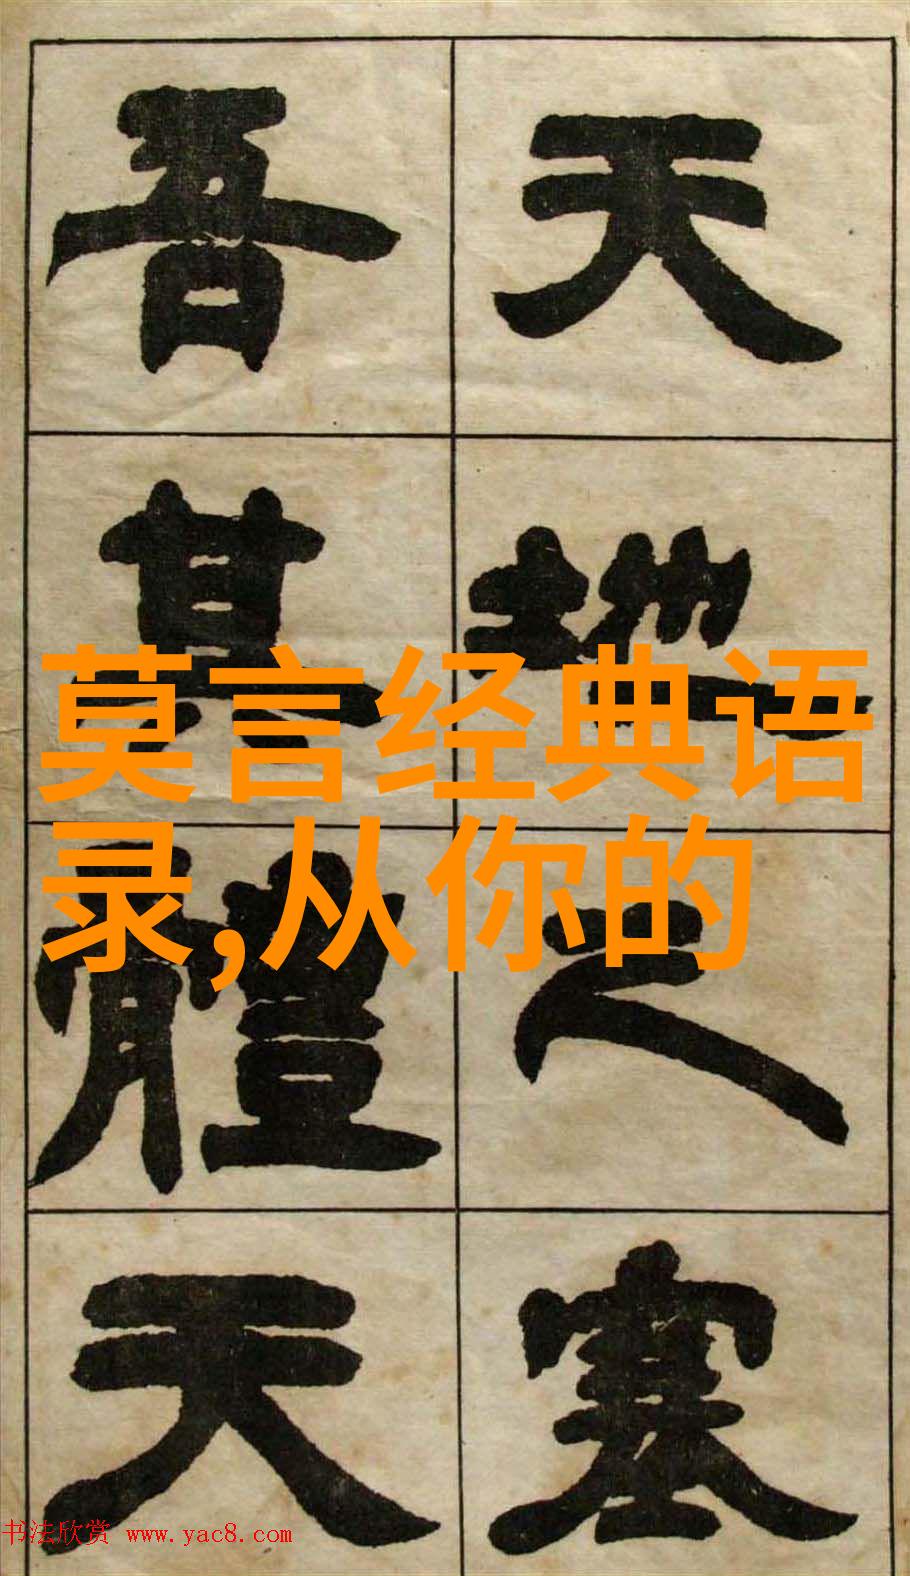 天地之塞
吾其體天
莫言经典语
录,从你的
书法欣赏 www.yac8.com